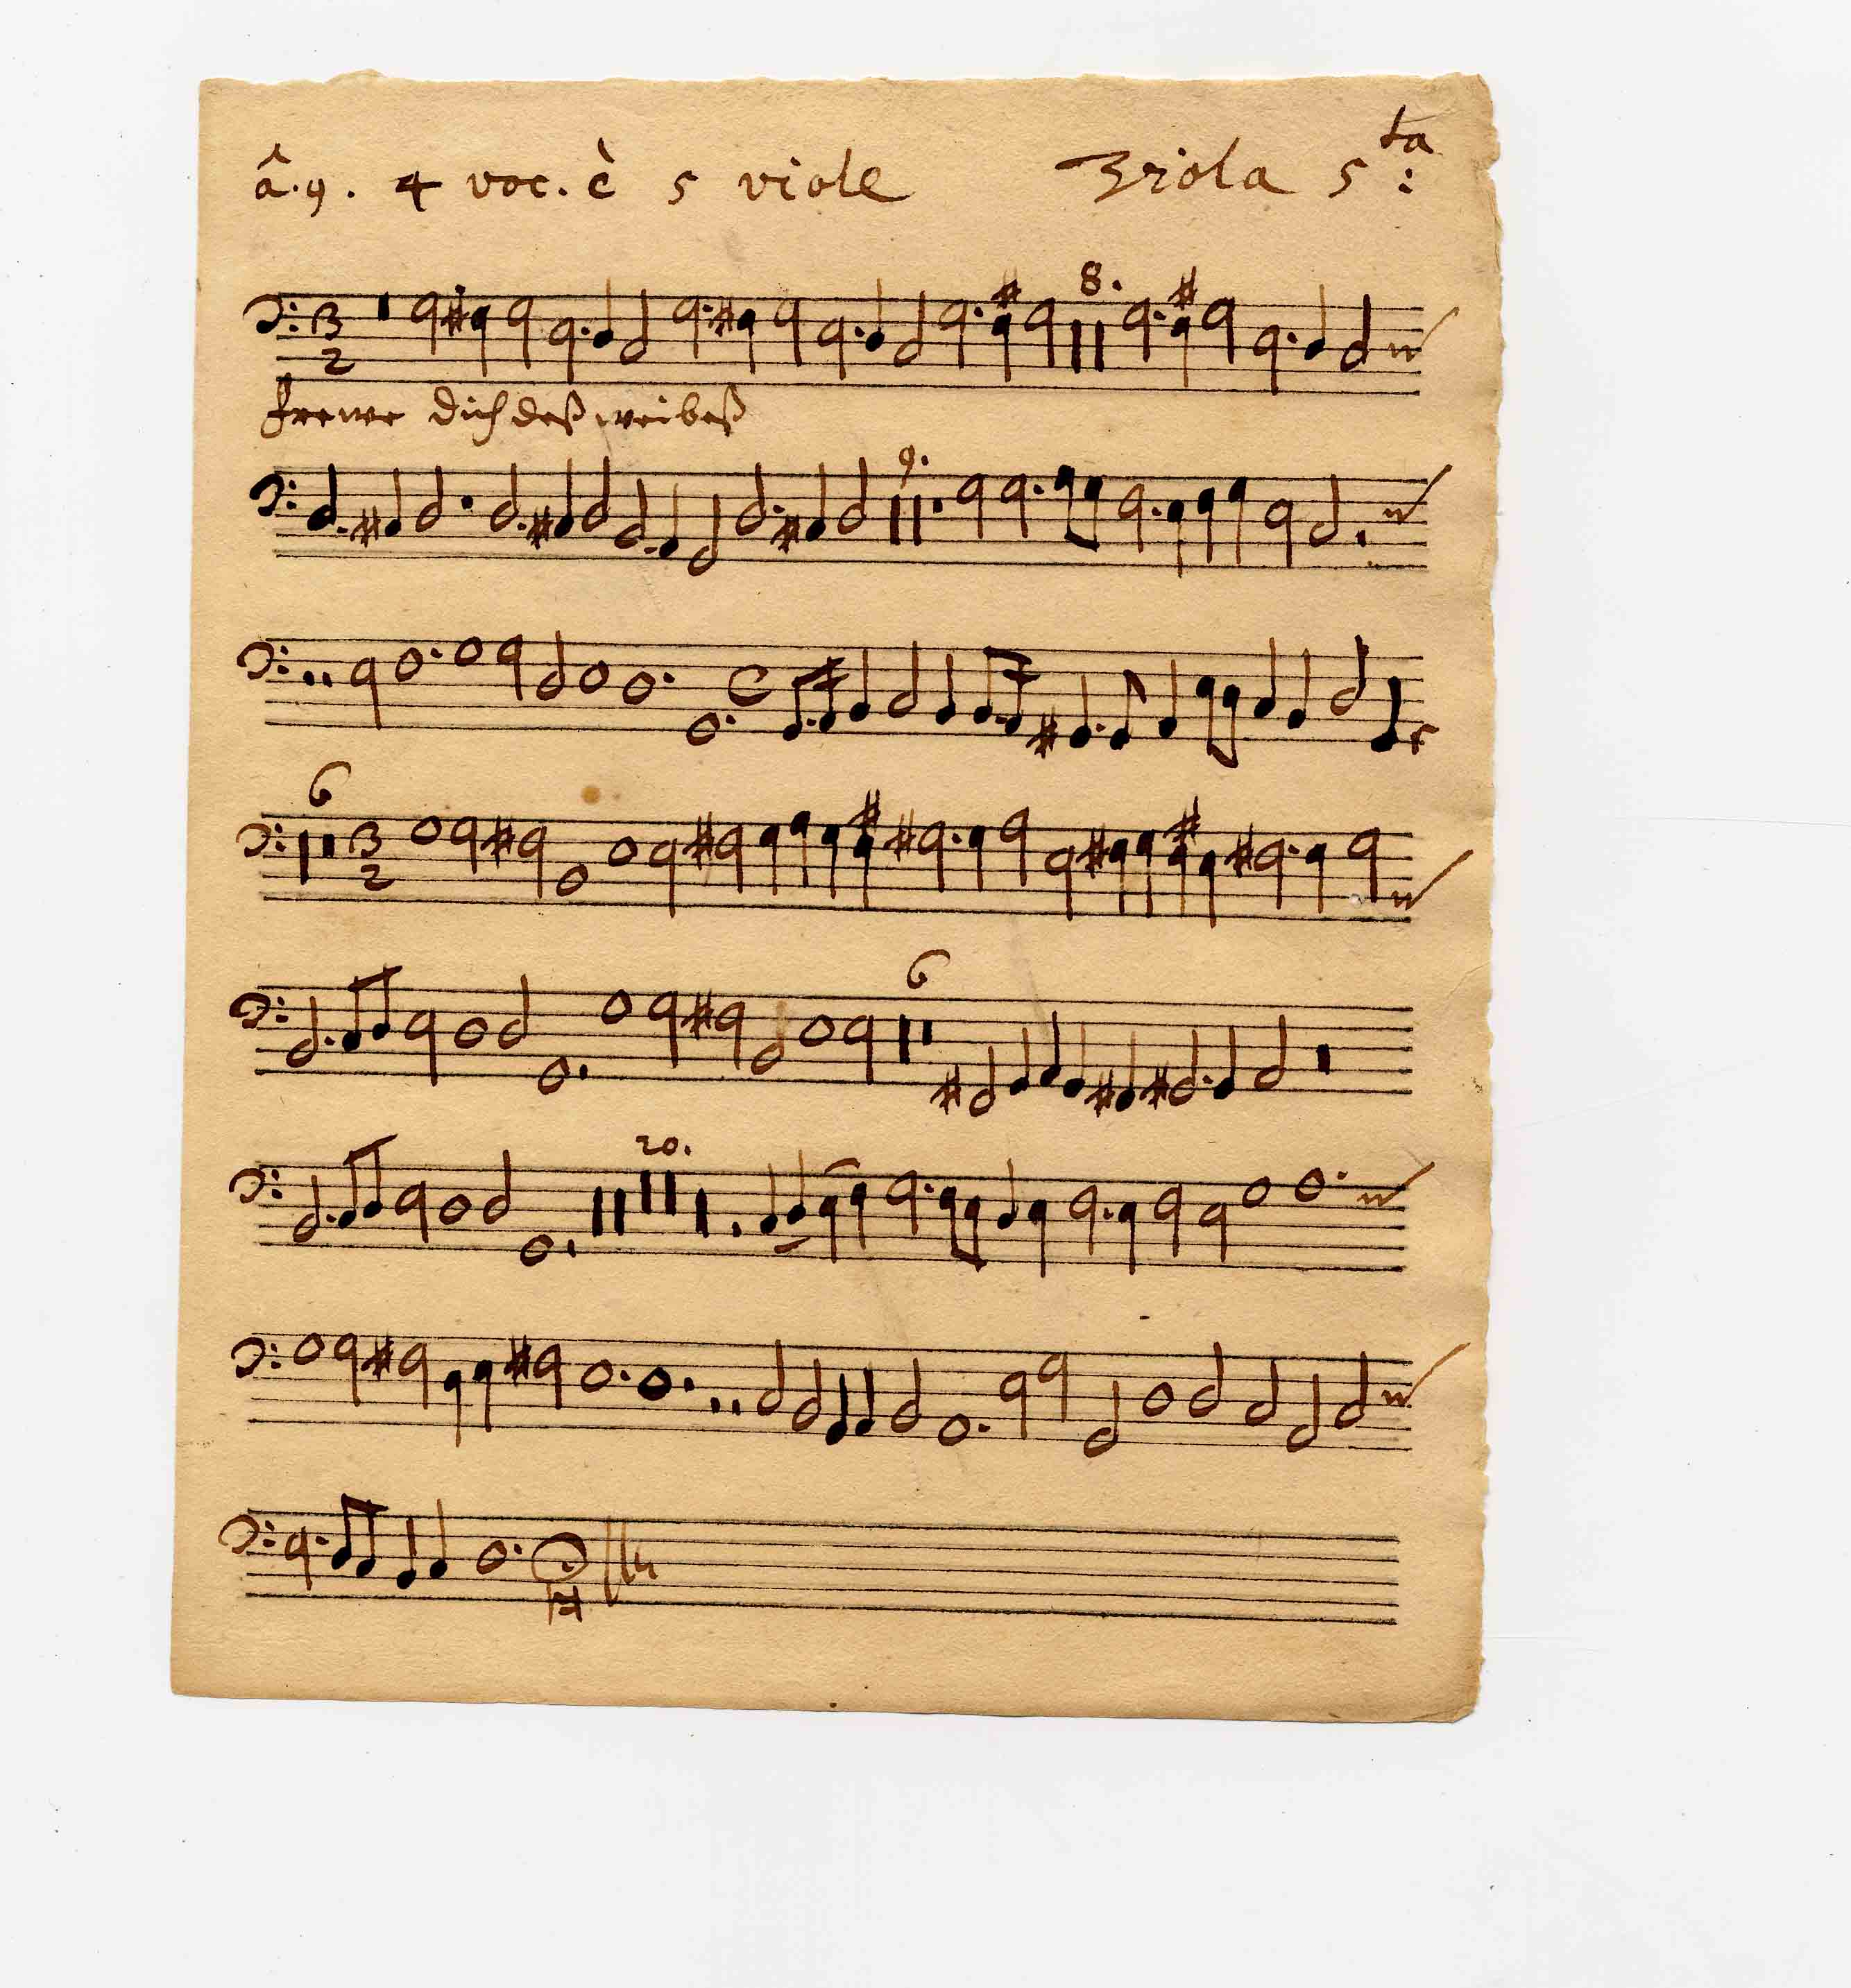 â. 9. 4 voc. è 5 viole Viola 5ta:
8.
3
2
Frewe dich deß weibeß
9.
C
6
3
2
6
20.